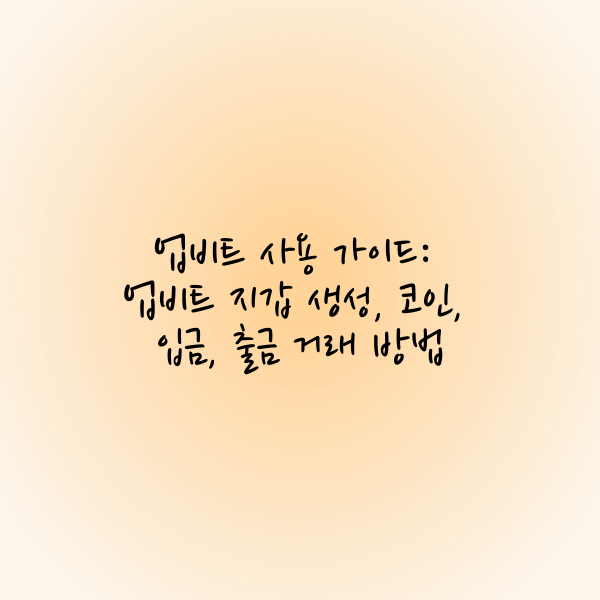 업비트 사용 가이드:
업비트 지갑 생성, 코인,
입금, 출금 거래 방법